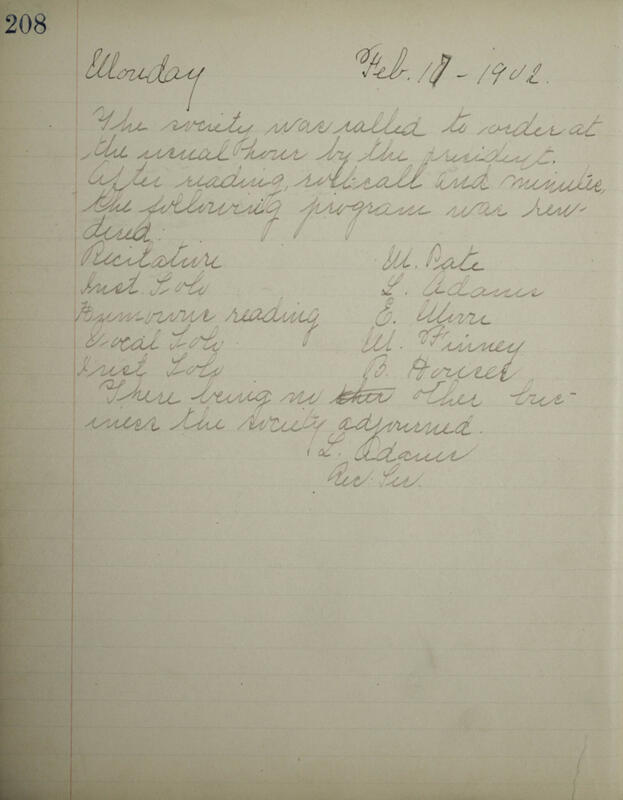 208
Monday Feb. 17 - 1902.
The society was called to order at
the usual hour by the president.
After reading, roll-call and minutes,
the following program was ren-
dered.
Recitation M. Pate
Inst. Solo L. Adams
Humorous reading E.
Vocal Solo M. Finney
Inst Solo B. Houser
There being no other bus-
iness the society adjourned.
L. Adams
Rec. Sec.